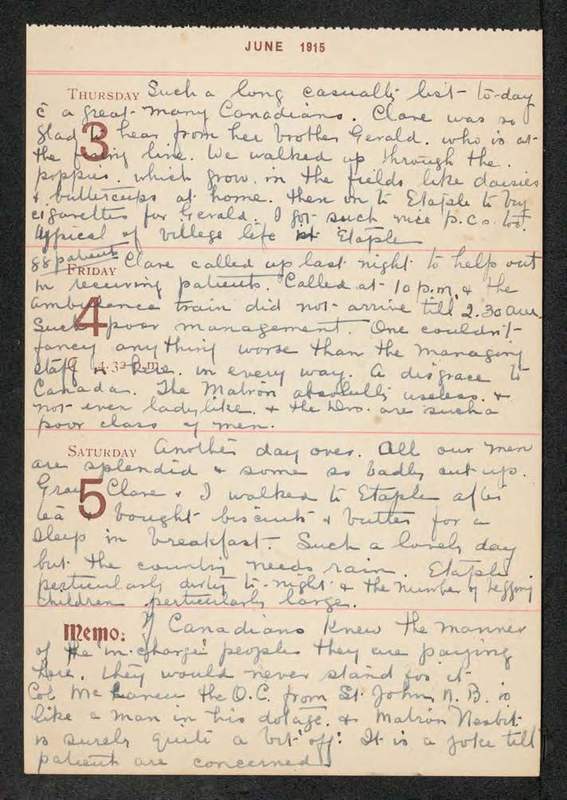 JUNE 1915
THURSDAY Such a long casualty list to-day
c̄ a great many Canadians. Clare was so
3
glad to hear from her brother Gerald. who is at
the firing line. We walked up through the
poppies. which grow in the fields like daisies
& buttercups at home. then on to Etaple to buy
cigarettes for Gerald. I got such nice p.cs. too
typical of village life Etaple
98 patients
FRIDAY Clare called up last night to help out
in receiving patients. Called at 10 p.m. & the
ambulance train did not arrive till 2.30 a.m.
4
Such poor management. One couldn't
fancy anything worse than the managing
staff here. in every way. A disgrace to
Canada. The Matron absolutely useless. &
not even ladylike. & the Drs. are such a
poor class of men.
SATURDAY Another day over. All our men
are splendid & some so badly cut up.
5
Clare & I walked to Etaple after
tea & bought biscuits & butter for a
sleep in breakfast. Such a lovely day
but the country needs rain. Etaple
perticularly dirty to-night & the number of begging
children perticularly large.
Memo: If Canadians knew the manner
of the in-charge people they are paying
here. they would never stand for it.
Col Mc the O.C. from St. John N.B. is
like a man in his dotage. & Matron Nesbit
is surely quite a bit "off". It is a joke till
patients are concerned